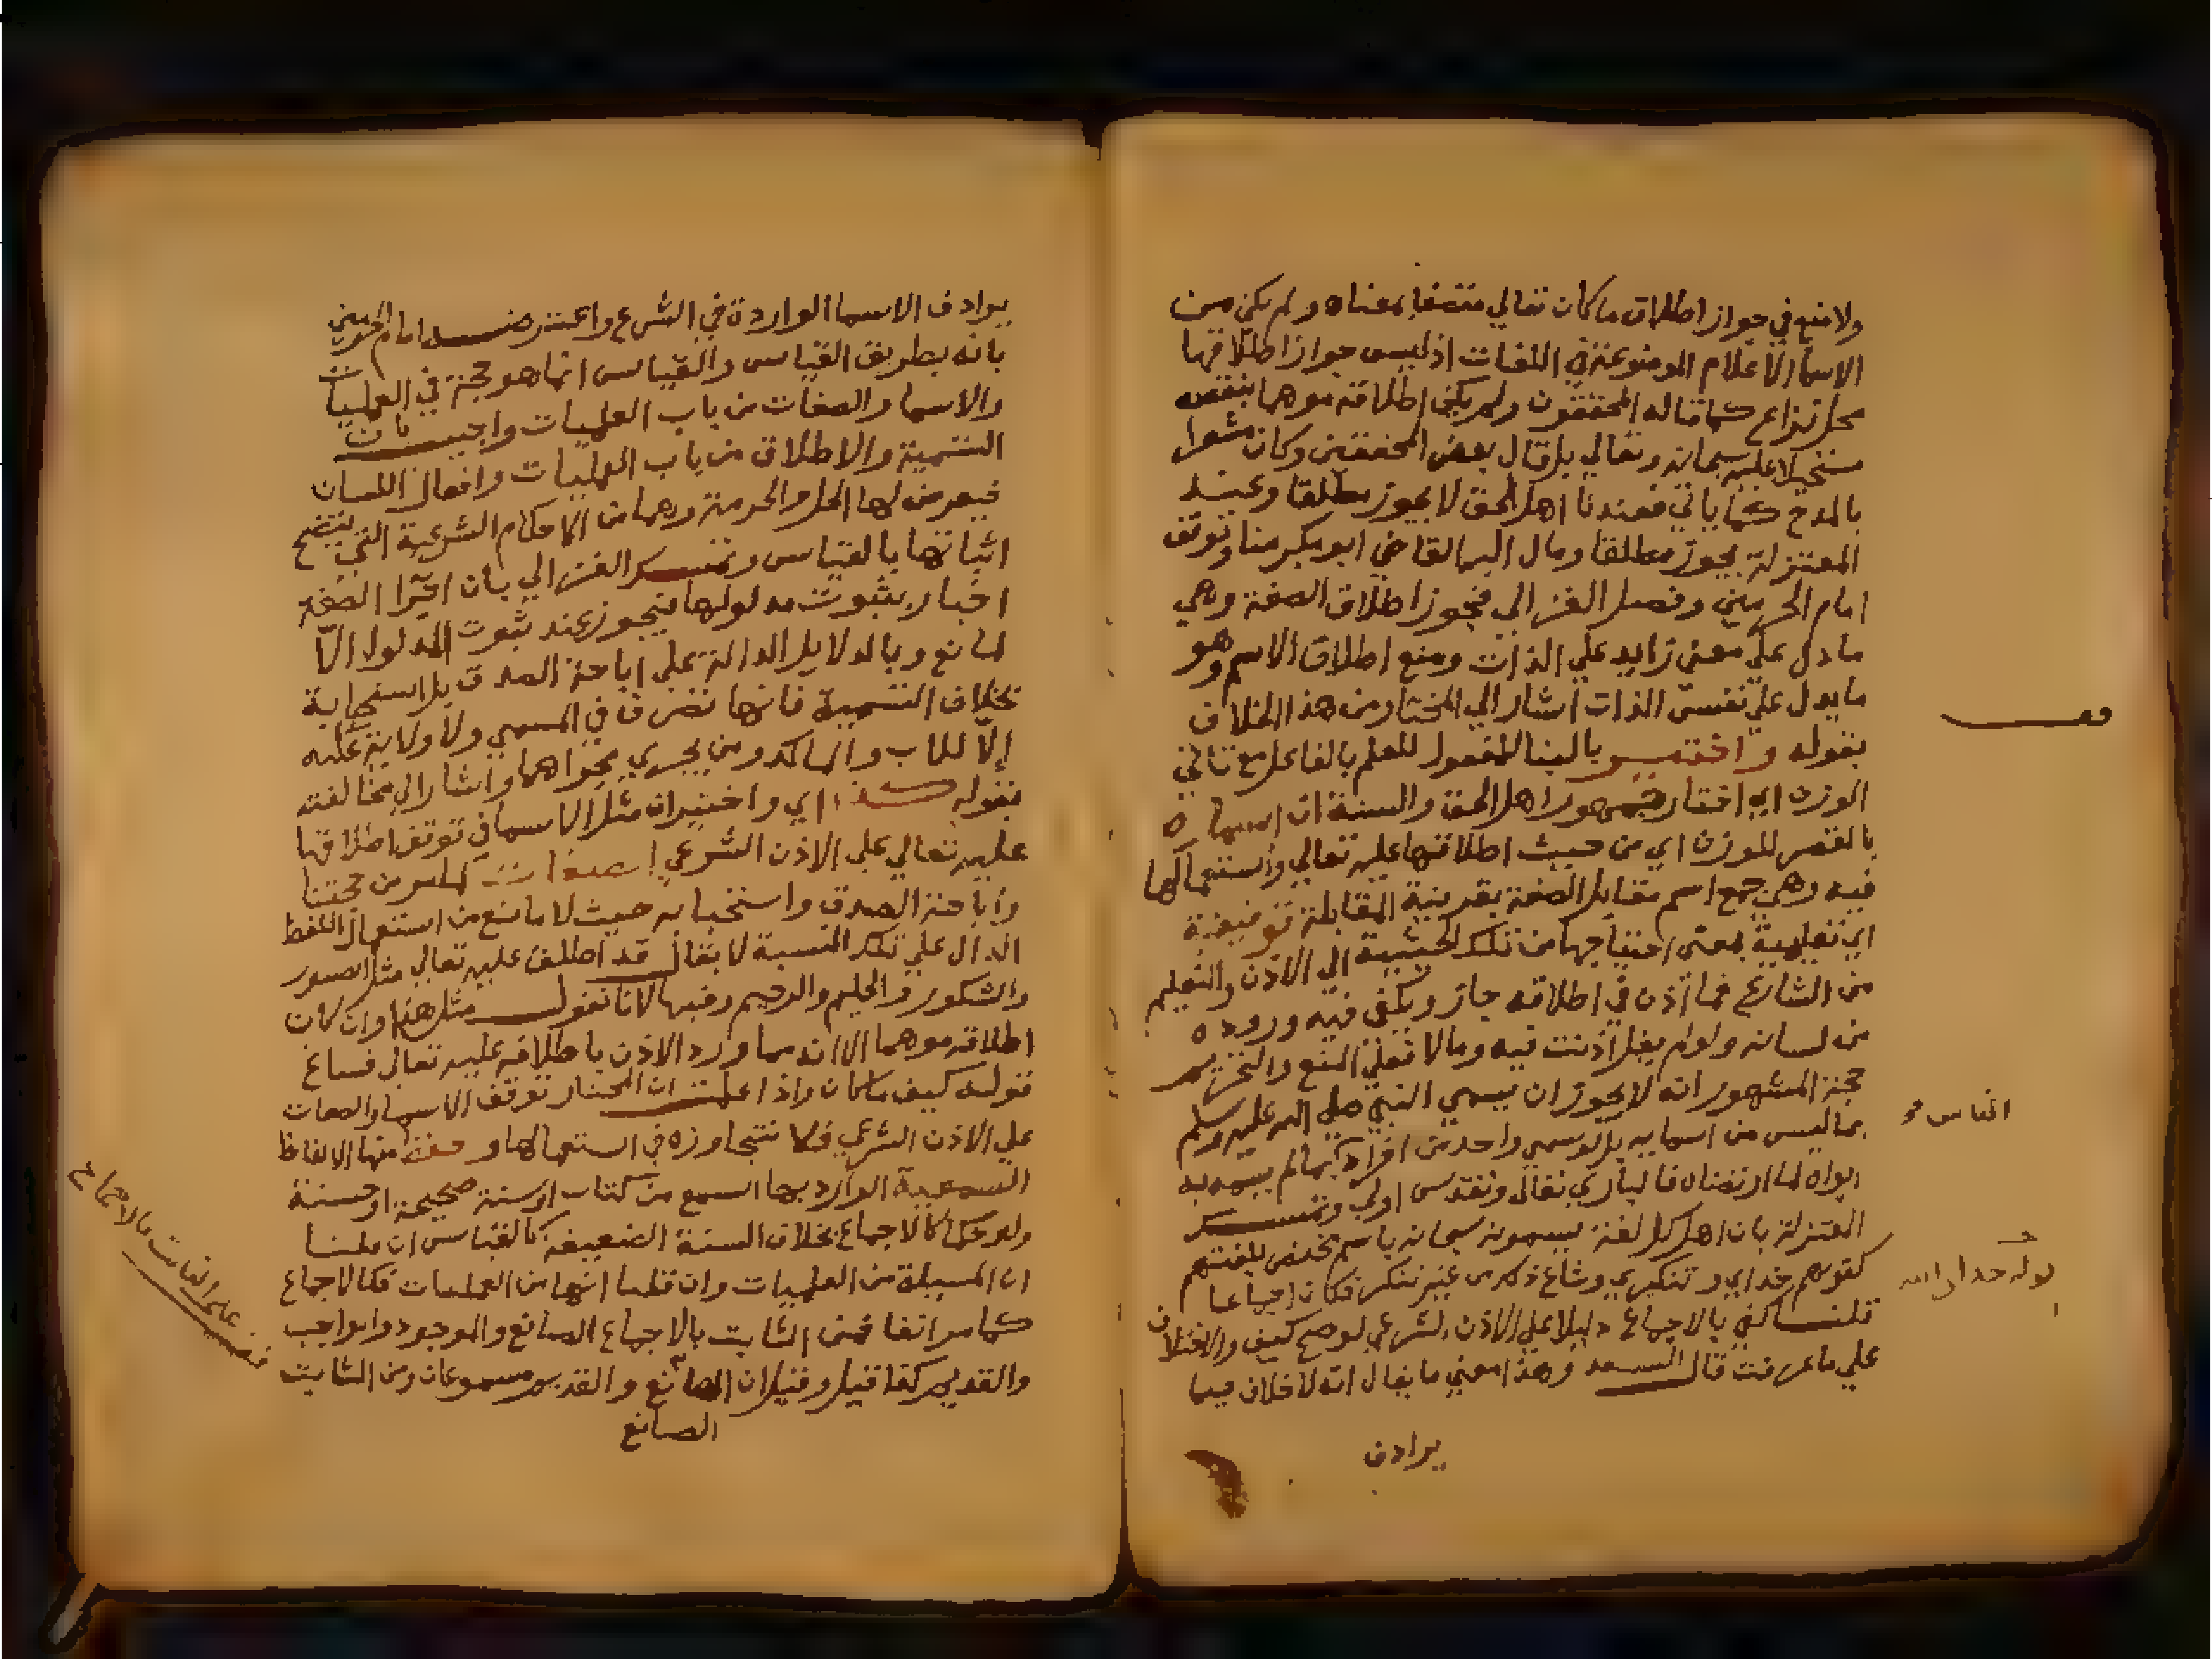 ولا منع في جواز اطلاق ما كان تعالي متصفا بمعناه ولم يكن من
الاسما الاعلام الموضوعة في اللغات اذ ليس جواز اطلاقها
محل نزاع كما قاله المحققون ولم يكن اطلاقه موهما بنقص
مستحيلا عليه سبحانه وتعالي بل قال بعض المحققين وكان مشعرا
بالمدح كما ياتي فعندنا اهل الحق لا يجوز مطلقا وعند
المعتزلة يجوز مطلقا ومال اليه القاضي ابو بكر منا وتوقف
امام الحرمين وفصل الغزالي فجوز اطلاق الصفة وهي
ما دل علي معني زايد علي الذات ومنع اطلاق الاسم وهو
ما يدل علي نفس الذات اشار الي المختار من هذا الخلاف
بقوله واختير بالبنا للمفعول للعلم بالفاعل مع تاتي
الوزن اي اختار جمهور اهل الحق والسنة ان اسماه
بالقصر للوزن اي من حيث اطلاقها عليه تعالي واستعمالها
فيه وهي جمع اسم مقابل الصفة بقرينة المقابلة توقيفية
اي تعليمية بمعني احتياجها من تلك الحيثية الي الاذن والتعليم
من الشارع فما اذن في اطلاقه جاز ويكفي فيه وروده
من لسانه ولو لم يقل اذنت فيه وما لا فعلي المنع والتحريم
حجة المشهور انه لا يجوز ان يسمي النبي صلي الله عليه وسلم
بما ليس من اسمايه بل لو سمي واحد من افراد بما لم يسمه به
ابواه لما ارتضاه فالباري تعالي وتقدس اولي وتمسك
المعتزلة بان اهل كل لغة يسمونه سبحانه باسم مختص بلغتهم
كقولهم خداي وتنكري وشاع ذلك من غير نكير فكان اجماعا
قلنا كفي بالاجماع دليلا علي الاذن الشرعي لو صح كيف والخلاف
علي ما عرفت قال السعد وهذا معني ما يقال انه لا خلاف فيما
يرادف
الناس
قوله خدا
يرادف الاسما الواردة في الشرع واعترضه امام الحرمين
بانه بطريق القياس والقياس انما هو حجة في العمليات
والاسما والصفات من باب العلميات واجيب بان
التسمية والاطلاق من باب العمليات وافعال اللسان
فيعرض لها الحل والحرمة وهما من الاحكام الشرعية التي يتضح
اثباتها بالقياس وتمسك الغزالي بان اجرا الصفة
اخبار بثبوت مدلولها فيجوز عند ثبوت المدلول الا
لمانع وبالدلايل الدالة علي اباحة الصدق بل استحبابه
بخلاف التسمية فانها تصرف في المسمي ولا ولاية عليه
الا للاب والمالك ومن يجري مجراهما واشار الي مخالفته
بقوله كذا اي واختير ان مثل الاسما في توقف اطلاقها
عليه تعالي علي الاذن الشرعي الصفات لما مر من حجتنا
واباحة الصدق واستحبابه حيث لا مانع من استعمال اللفظ
الدال علي تلك النسبة لا يقال قد اطلق عليه تعالي مثل الصبور
والشكور والحليم والرحيم وفيها لانا نقول مثل هذا وان كان
اطلاقه موهما الا انه مما ورد الاذن باطلاقه عليه تعالي فساغ
قوله كيف ما كان واذا علمت ان المختار توقف الاسما والصفات
علي الاذن الشرعي فلا نتجاوزه في استعمالها وحفظ منها الالفاظ
السمعية الوارد بها السمع من كتاب او سنة صحيحة او حسنة
ولو حكما كالاجماع بخلاف السنة الضعيفة كالقياس ان قلنا
ان المسيلة من العلميات وان قلنا انها من العمليات فكالاجماع
كما مر انفا فمن الثابت بالاجماع الصانع والموجود والواجب
والقديم كذا قيل وقيل ان الصانع والقديم مسموعان ومن الثابت
الصانع